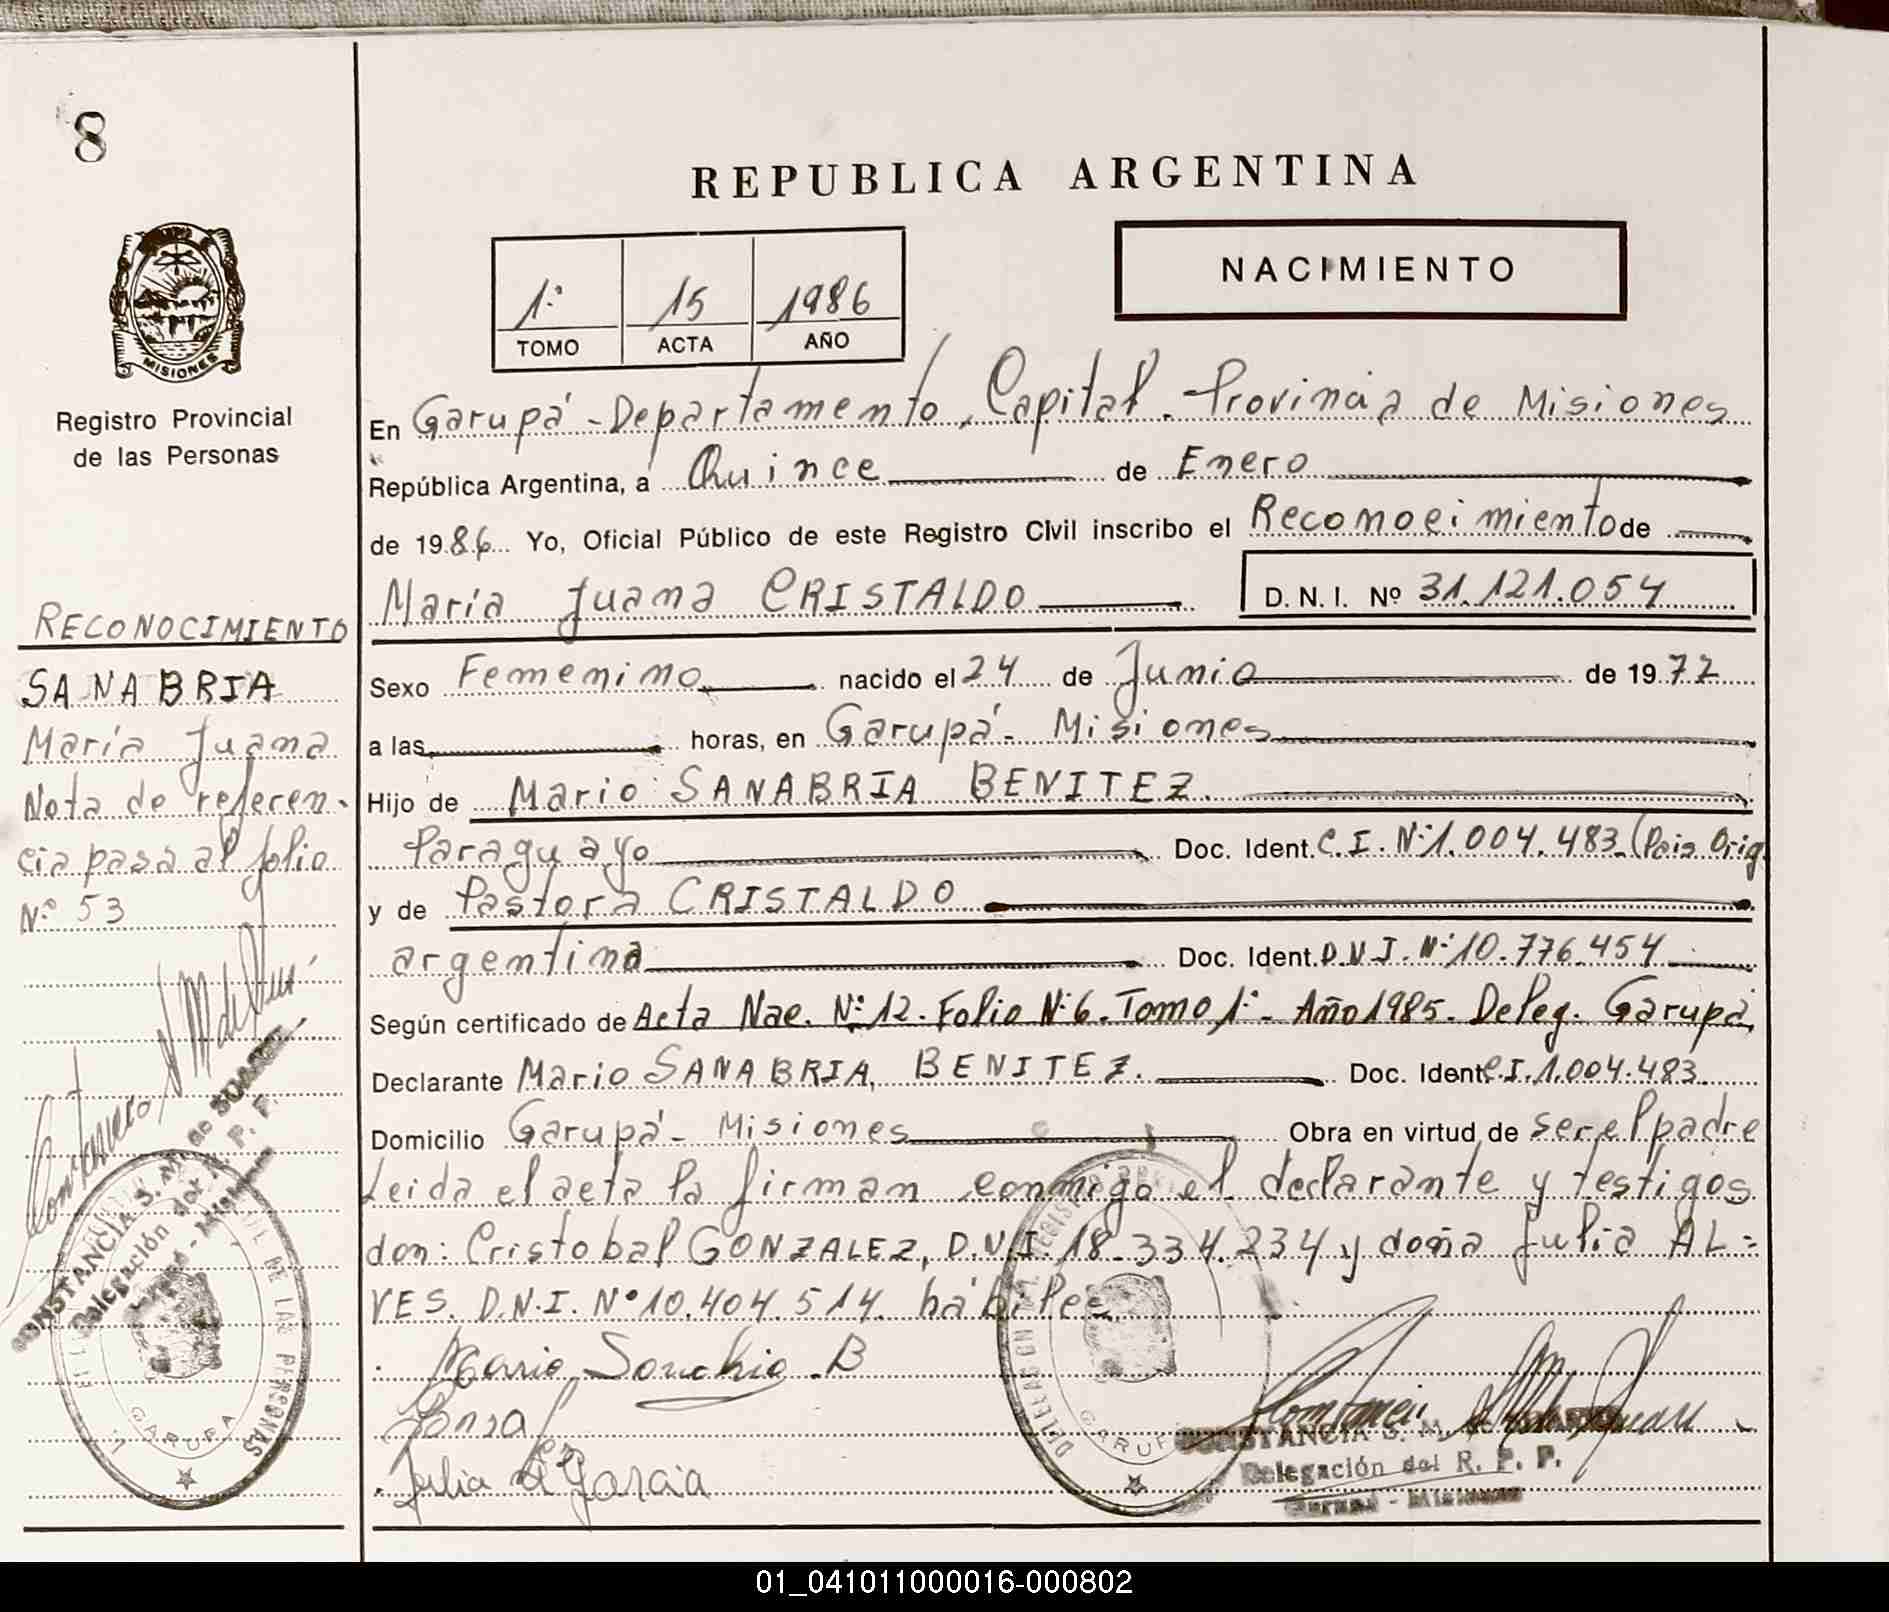 8
REPUBLICA ARGENTINA
NACIMIENTO
1º 15 1986
TOMO ACTA AÑO
MISIONES
Registro Provincial
de las Personas
En Garupá - Departamento, Capital. - Provincia de Misiones
República Argentina, a Quince de Enero
de 1986 Yo, Oficial Público de este Registro Civil inscribo el Reconocimiento de
María Juana CRISTALDO D. N. I. Nº 31.121.054
Sexo Femenino nacido el 24 de Junio de 1972
a las horas, en Garupá - Misiones
Hijo de Mario SANABRIA BENITEZ.
Paraguayo Doc. Ident. C. I. Nº 1.004.483 (Pais Orig
y de Pastora CRISTALDO
argentina Doc. Ident. D.N.I. Nº 10.776.454
Según certificado de Acta Nac. Nº 12. Folio Nº 6. Tomo 1º - Año 1985. Deleg. Garupá
Declarante Mario SANABRIA, BENITEZ. Doc. Ident C.I. 1.004.483
Domicilio Garupá - Misiones Obra en virtud de ser el padre
Leida el acta la firman conmigo el declarante y testigos
don: Cristobal GONZALEZ, D.N.I. 18.334.234 y doña Julia AL=
VES. D.N.I. Nº 10.404.514. hábiles
Julia A García
CONSTANCIA S. M.
Delegación del R. P. P.
Garupá - Misiones
GARUPA
RECONOCIMIENTO
SANABRIA
María Juana
Nota de referen-
cia pasa al folio
Nº 53
CONSTANCIA S. M. de SUAREZ
Delegación del R. P. P.
Garupá - Misiones
DE LAS PERSONAS
GARUPA
01_041011000016-000802